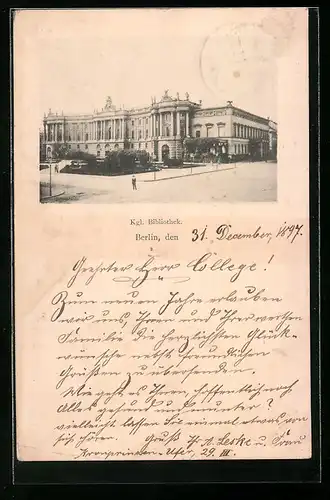 Kgl. Bibliothek.
Berlin, den 31. Dezember, 1897.
Geehrter Herr College!
Zum neuen Jahre erlauben
wir uns, Ihnen und Ihrer werthen
Familie die herzlichsten Glück-
wünsche nebst freundlichen
Grüßen zu übersenden.
Wie geht es Ihnen, hoffentlich noch
Alles gesund und munter?
vielleicht lassen Sie einmal etwas von
sich hören. Gruß A. Leske u. Frau
Kronprinzen-Ufer, 29. III.